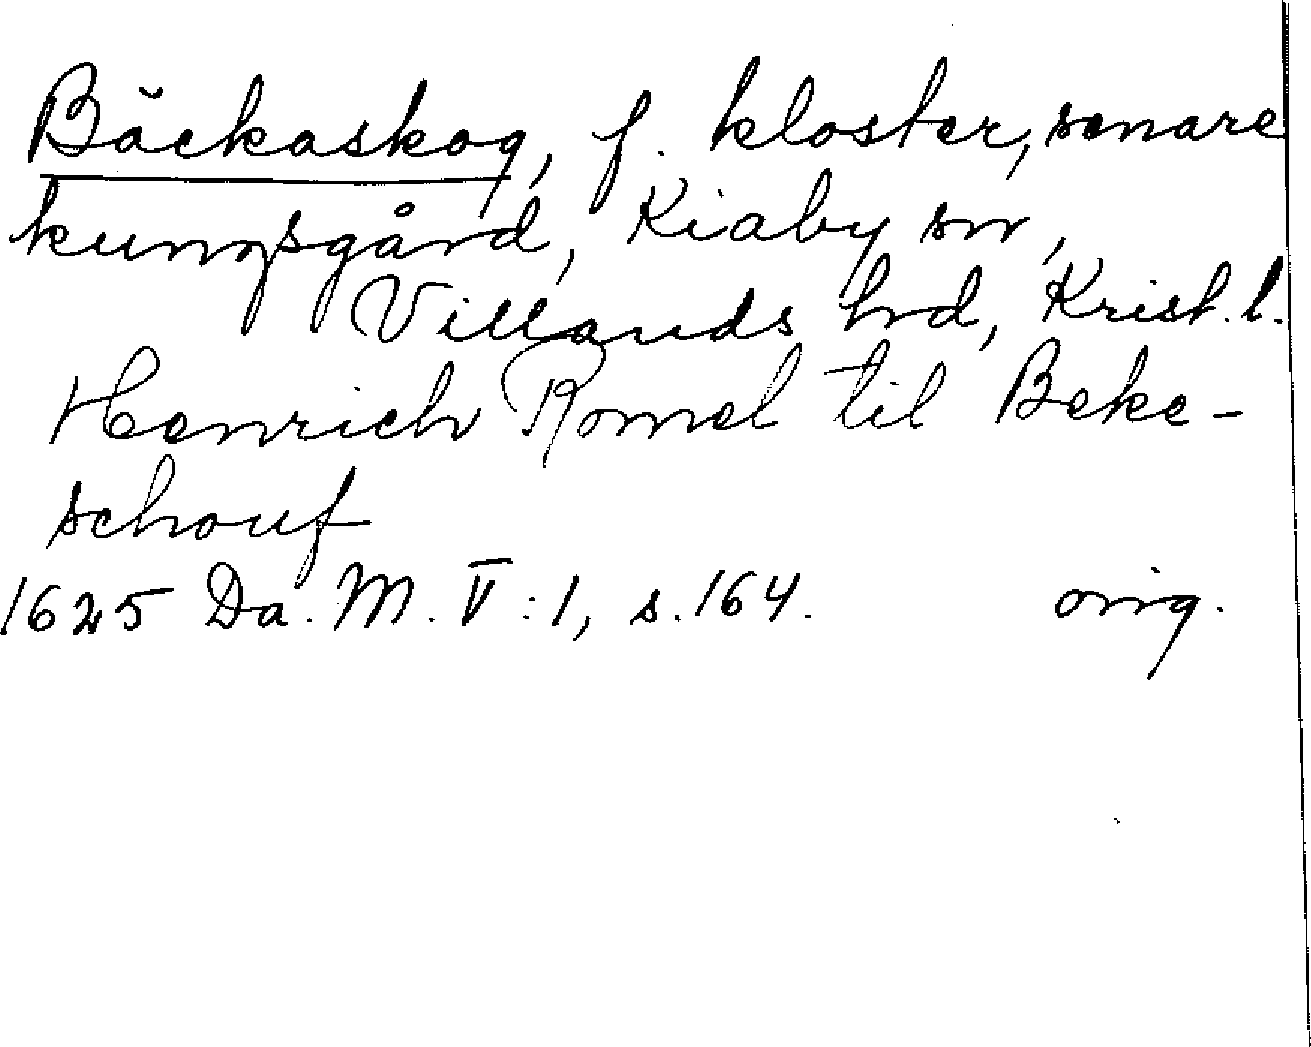 Bäckaskog, f. kloster, senare
kungsgård, Kiaby sn,
Villands hd, Krist. l.
Henrich Romel til Beke-
schouf
1625 Da. M. V:1, s. 164. orig.